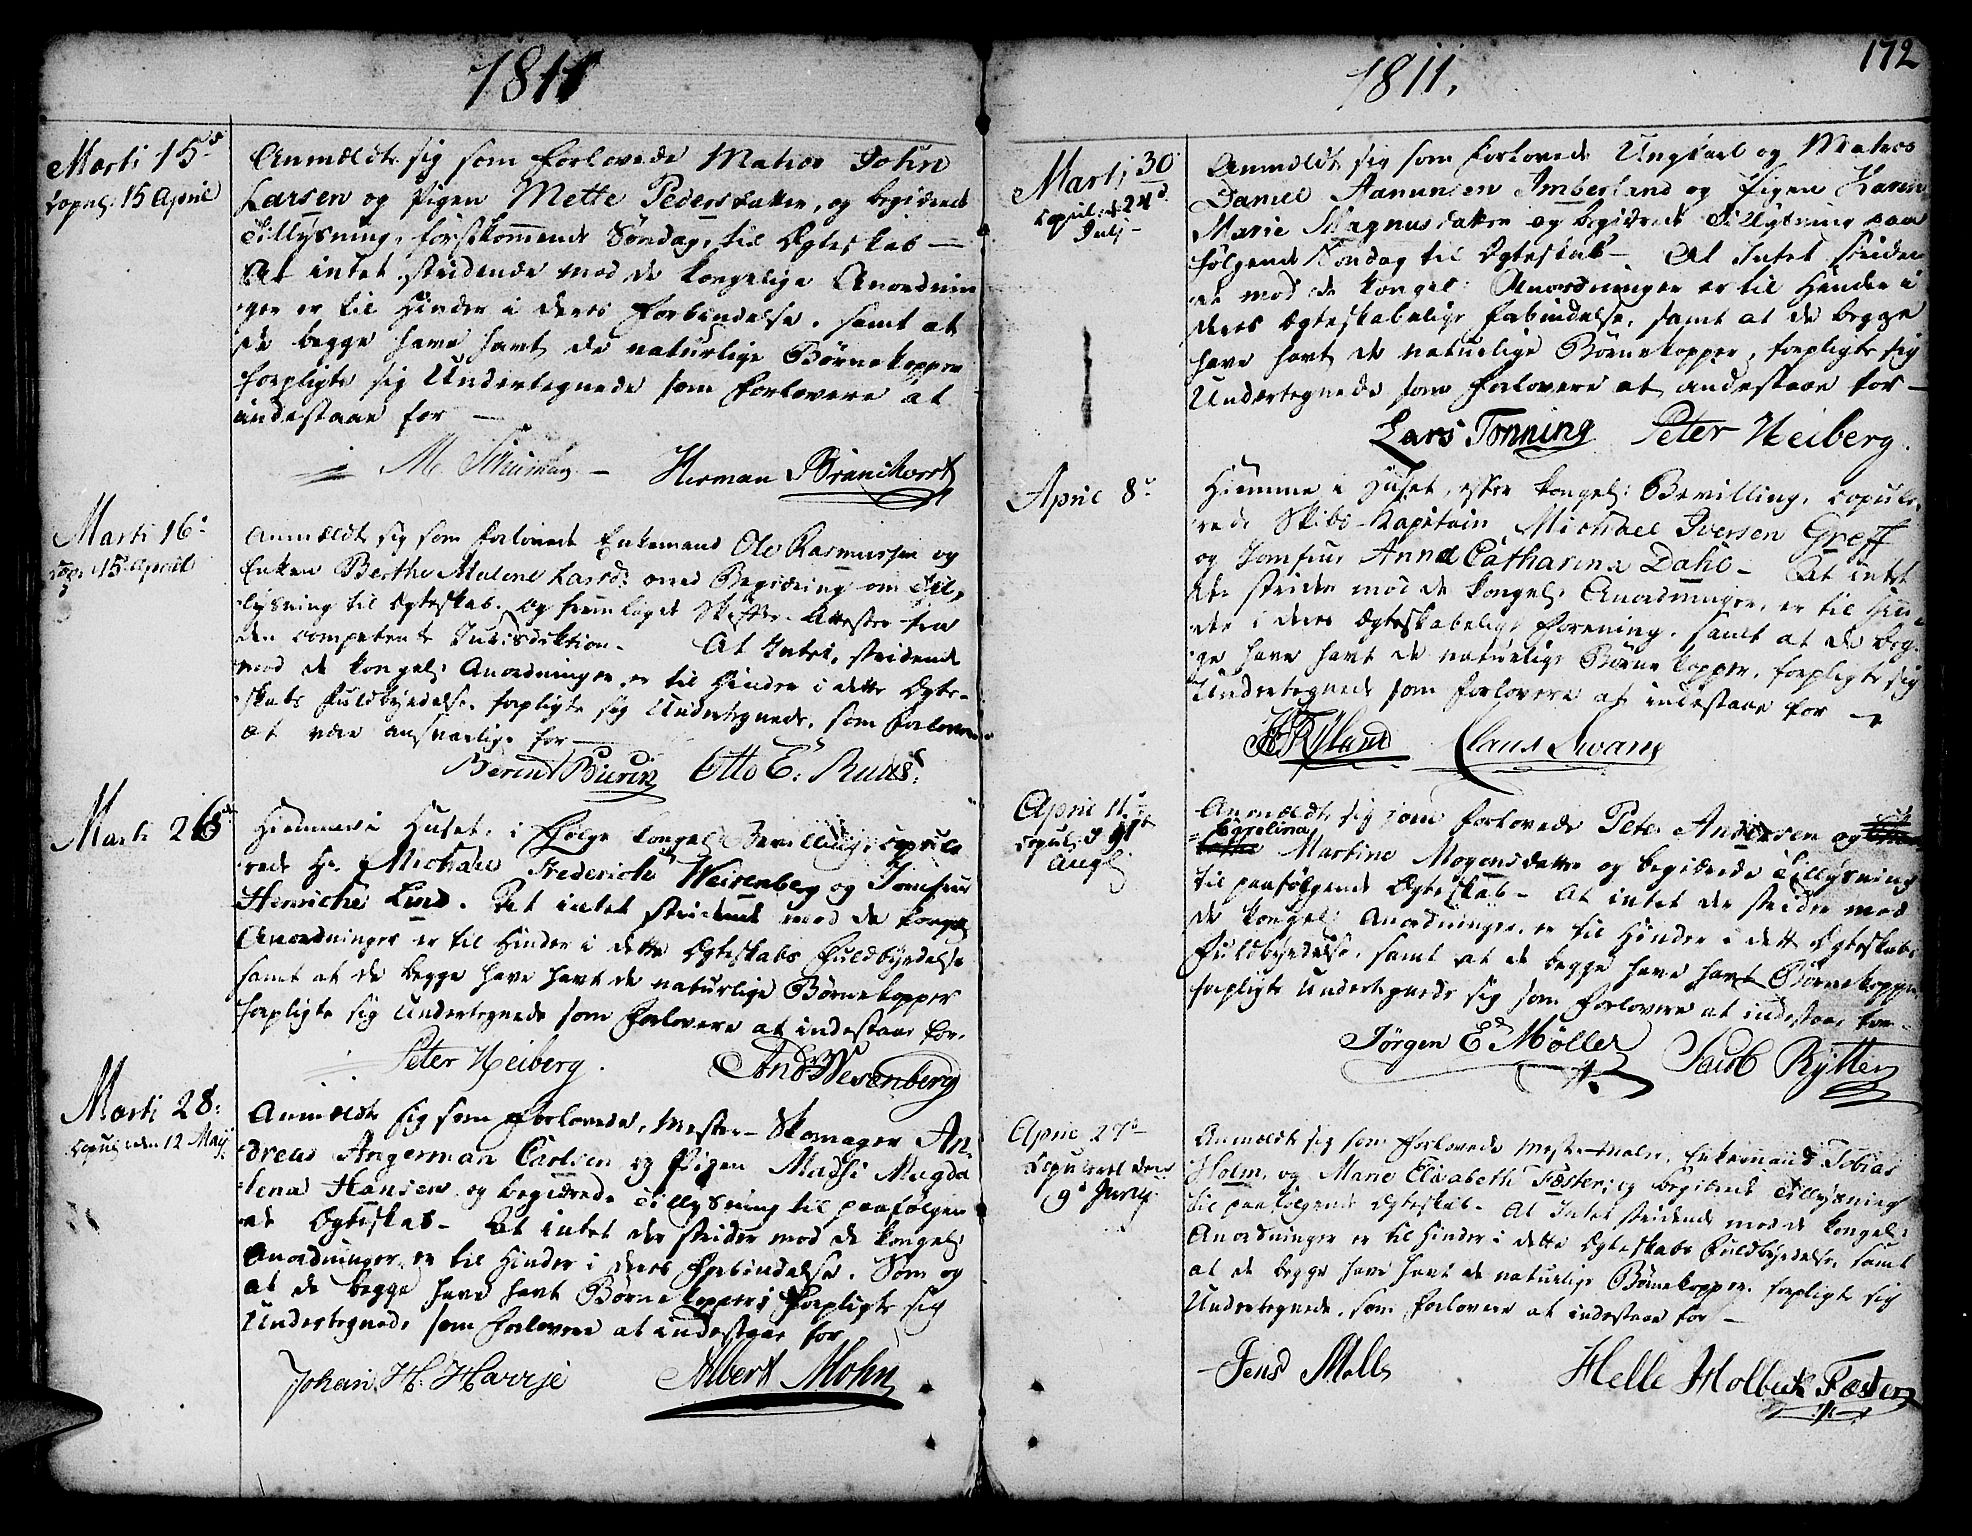 1811
Marti 15de
Copul: 15 April
Anmældte sig som forlovede Matros John
Larsen og Pigen Mette Pedersdatter, og begiærede
Tillysning, førstkommende Søndag, til Ægteskab —
At intet stridende mod de kongelige Anordnin
ger er til Hinder i deres Forbindelse, samt at
de begge have havt de naturlige Børnekopper
forpligte sig Undertegnede som Forlovere at
indestaae for —
Herman Branckhorst
Marti 16de
cop: 15 April
Anmældte sig som forlovede Enkemand Ole Rasmussen og
Enken Berthe Malene Larsd: med Begiæring om Til,
lysning til Ægteskab. Og fremlagt Skifte-Attester fra
den competente Jurisdiktion. At Intet, stridende
mod de kongel: Anordninger, er til Hinder i dette Ægte-
skabs Fuldbyrdelse, forpligte sig Undertegnede, som Forlovere
at være ansvarlige for —
Berent Otto E. Ruus.
Marti 26de
Hiemme i Huset, i Følge kongel: Bevilling, copule
rede Hr. Michael Frederich Weisenberg og Jomfrue
Henriche Lind. At intet stridende mod de kongel:
Anordninger er til Hinder i dette Ægteskabs Fuldbyrdelse
samt at de begge have havt de naturlige Børnekopper
forpligte sig Undertegnede som Forlovere at indestaae for.
Peter Heiberg. And: Wesenberg
Marti 28:
Copul: den 12 May
Anmældte sig som forlovede, Mester-Skomager An-
dreas Angerman Carlsen og Pigen Madsi Magda
lena Hansen og begiærede Tillysning til paafølgen
de Ægteskab — At intet der strider mod de kongel:
Anordninger, er til Hinder i deres Forbindelse. Som og
at de begge have havt Børnekopper, forpligte sig
Undertegnede som Forlovere at indestaae for
Johan H. Harrje Albert Mohn
1811.
172
Martj 30
Copul: d. 24de
Julj —
Anmældte sig som forlovede Ungkarl og Matros
Daniel Aanunsen Amberland og Pigen Karen
Marie Magnusdatter og begiærede Tillysning paa
følgende Søndag til Ægteskab — At Intet striden
de mod de kongel: Anordninger er til Hinder i
deres Ægteskabelige Forbindelse, samt at de begge
have havt de naturlige Børnekopper, forpligte sig
Undertegnede som Forlovere at indestaae for —
Lars Tonning Peter Heiberg.
April 8de
Hiemme i Huset, efter kongel: Bevilling, copule,
rede Skibs-Kapitain Michael Iversen Greff
og Jomfrue Anna Catharina Dahl — At intet
der strider mod de kongel: Anordninger, er til Hin
der i deres Ægteskabelige Forening, samt at de beg
ge have havt de naturlige Børnekopper, forpligte sig
Undertegnede som Forlovere at indestaae for —
Claus Svane
April 11te
Copul: d. 9de
Aug:
Anmældte sig som forlovede Peter Andersen og
Carolina
Martine Mogensdatter og begiærede Tillysning
til paafølgende Ægteskab — At intet der strider mod
de kongel: Anordninger, er til Hinder i dette Ægteskabs
Fuldbyrdelse, samt at de begge have havt Børnekopper
forpligte Undertegnede sig som Forlovere at indestaae for —
Jørgen E Møller Jacob Rytter
April 27de
Copuleret den
9de Juny
Anmældte sig som forlovede Mester-Maler, Enkemand Tobias
Holm, og Marie Elisabeth Fæster, og begiærede Tillysning
til paafølgende Ægteskab — At Intet stridende mod de kongel:
Anordninger er til Hinder i dette Ægteskabs Fuldbyrdelse, samt
at de begge have havt de naturlige Børnekopper, forpligte sig
Undertegnede, som Forlovere at indestaae for —
Jens Møll Helle Holbeck Fæster